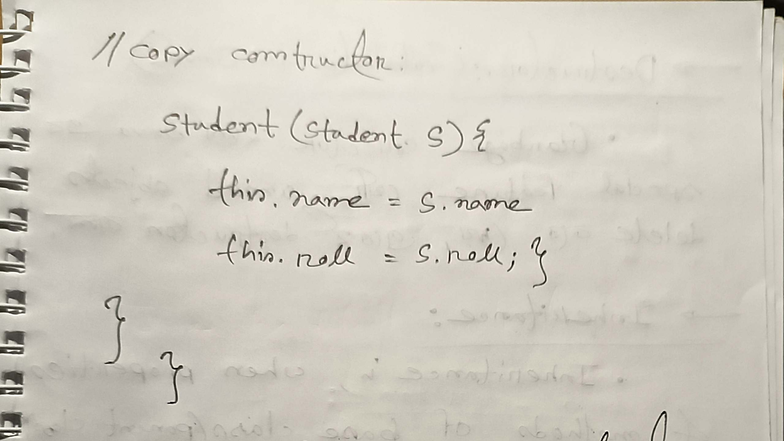 // Copy constructor:
Student (Student S) {
this.name = S.name
this.roll = S.roll; }
}
}